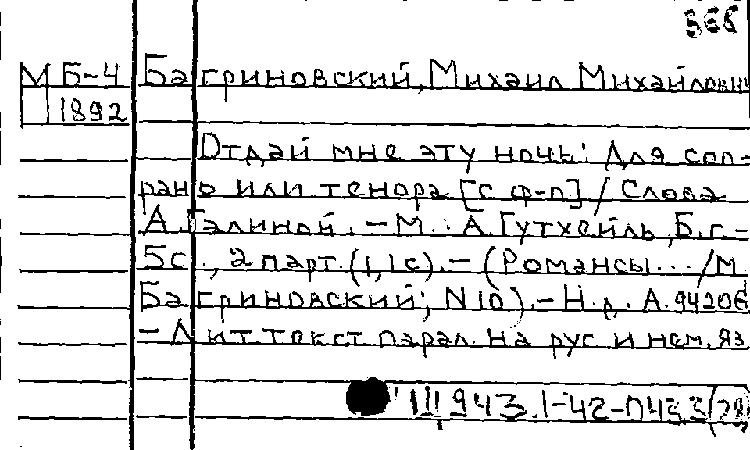 М Б-4 Багриновский, Михаил Михайлович
1892
Отдай мне эту ночь: Для соп-
рано или тенора [с ф-п] / Слова
А. Галиной. – М.: А. Гутхейль, Б.г. –
5с., 2 парт. (1,1с). – (Романсы... / М.
Багриновский; N10). – Н.д. А. 9420б
– Лит. текст парал. на рус. и нем. яз